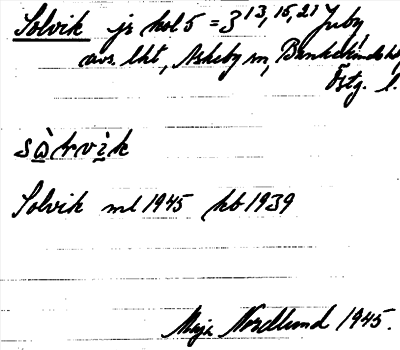 Solvik jr kol 5 = 3 13, 15, 21 Juby,
avs. lht, Askeby sn, Bankekinds hd,
Östg. l.
sòlvìk
Solvik ml 1945 kb 1939
Maja Nordlund 1945.